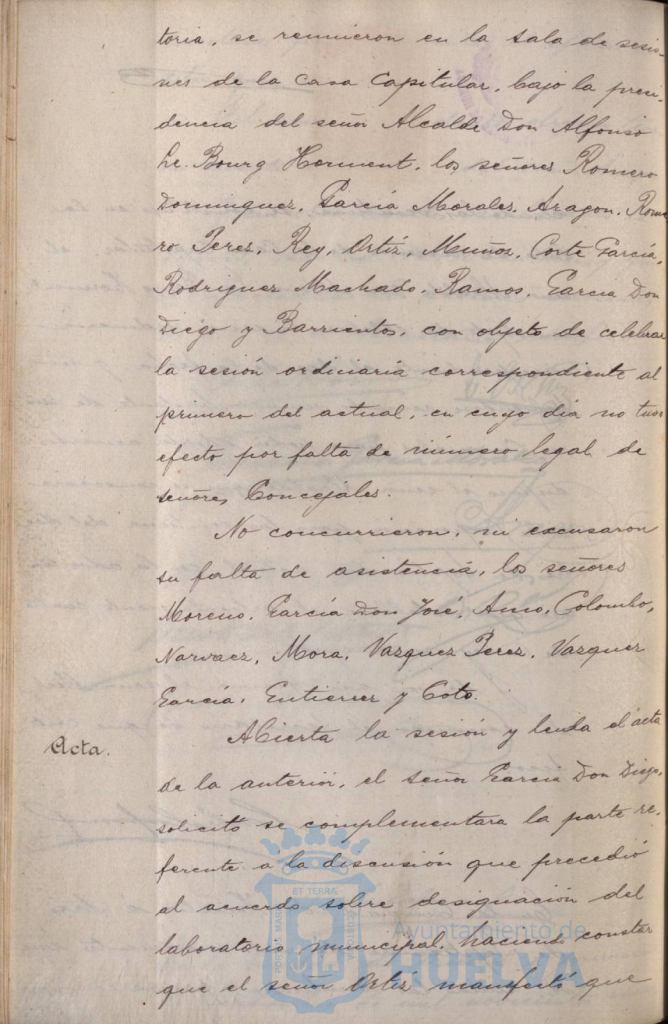 toria, se reunieron en la sala de sesio-
nes de la Casa Capitular, bajo la presi
dencia del señor Alcalde Don Alfonso
Le Bourg Herment, los señores Romero
Dominguez, García Morales, Aragon, Rome
ro Perez, Rey, Ortíz, Muñoz, Corte García,
Rodriguez Machado, Ramos, García Don
Diego y Barrientos, con objeto de celebrar
la sesión ordiniaria correspondiente al
primero del actual, en cuyo dia no tuvo
efecto por falta de número legal de
señores Concejales.
No concurrieron, ni excusaron
su falta de asistencia, los señores
Moreno, García Don José, Amo, Colombo,
Narvaez, Mora, Vazquez Perez, Vazquez
García, Gutierrez y Coto.
Acta.
Abierta la sesión y leida el acta
de la anterior, el señor García Don Diego,
solicitó se complementara la parte re-
ferente a la discusión que precedió
al acuerdo sobre designación del
laboratorio municipal, haciendo constar
que el señor Ortíz manifestó que
ET TERRÆ
Ayuntamiento de
HUELVA